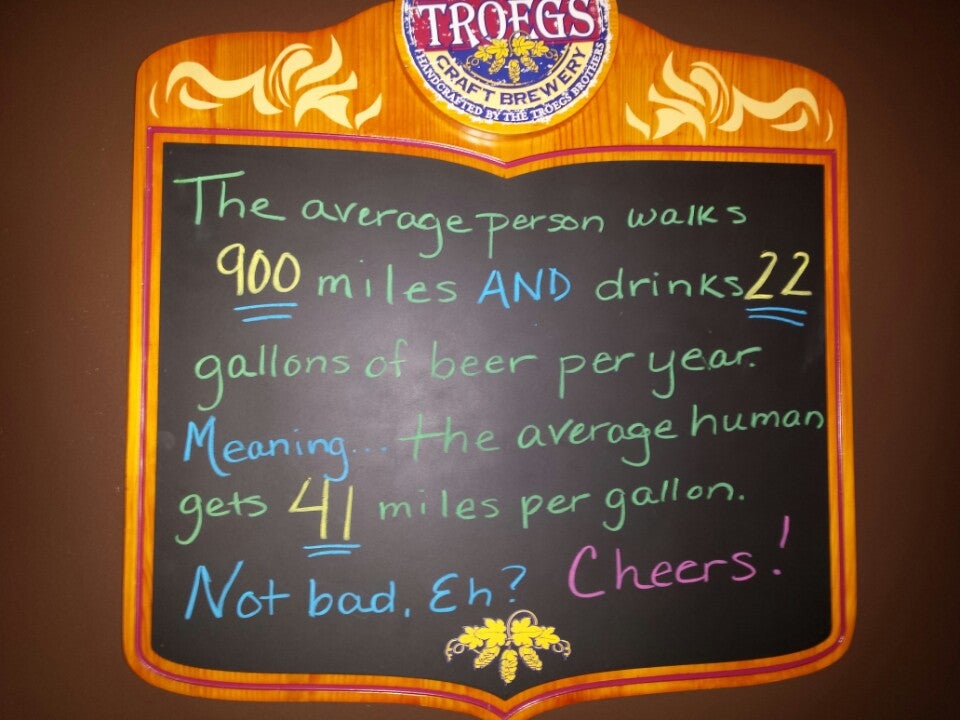 TROEGS
CRAFT BREWERY
HANDCRAFTED BY THE TRÖEGS BROTHERS
The average person walks
900 miles AND drinks 22
gallons of beer per year.
Meaning... the average human
gets 41 miles per gallon.
Not bad, Eh? Cheers!